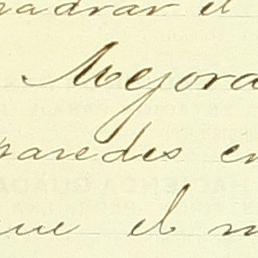 uadrar el
Mejora
paredes en
que el m